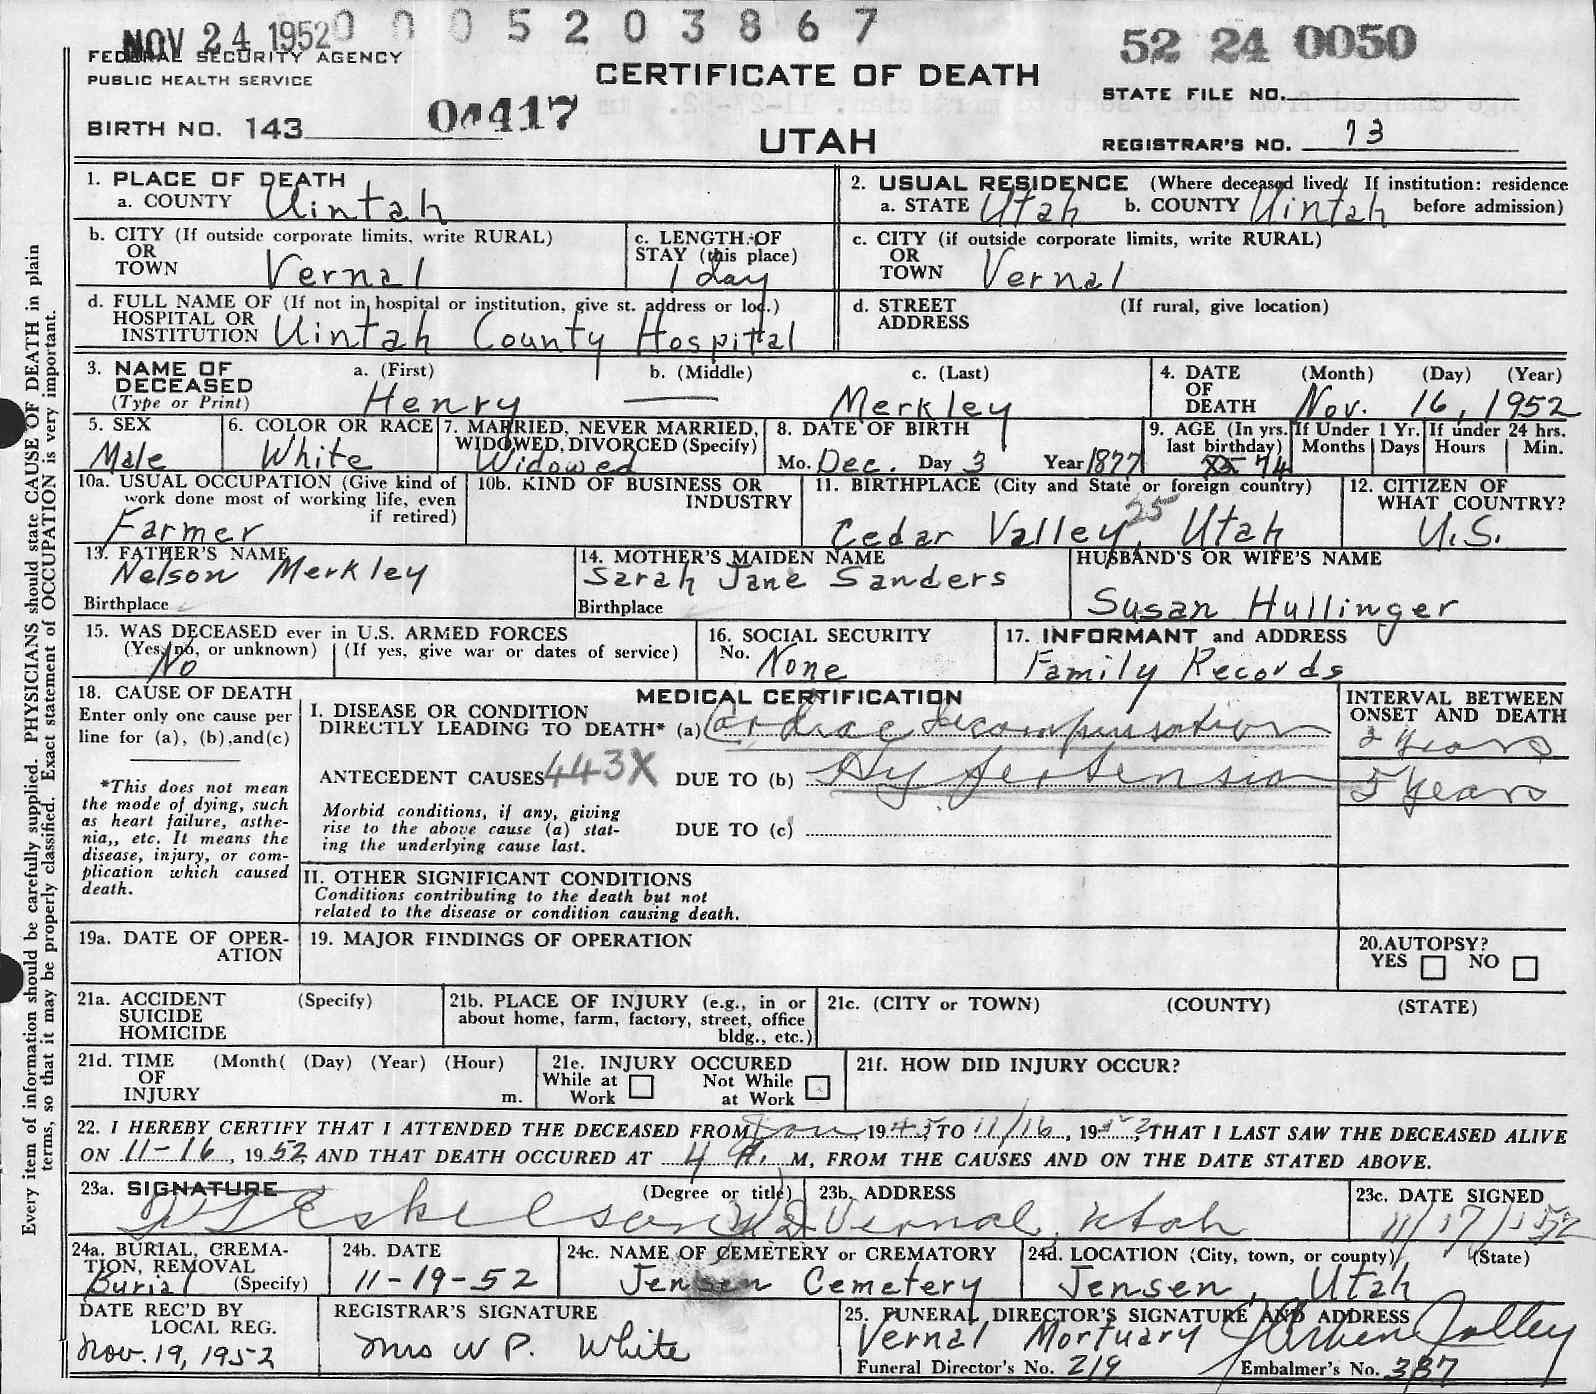 NOV 24 1952 0005203867
52 24 0050
FEDERAL SECURITY AGENCY
PUBLIC HEALTH SERVICE
CERTIFICATE OF DEATH
STATE FILE NO.
BIRTH NO. 143 04417
UTAH
REGISTRAR'S NO. 73
1. PLACE OF DEATH
a. COUNTY Uintah
2. USUAL RESIDENCE (Where deceased lived. If institution: residence
a. STATE Utah b. COUNTY Uintah before admission)
b. CITY (If outside corporate limits, write RURAL)
OR
TOWN Vernal
c. LENGTH OF
STAY (this place)
1 day
c. CITY (if outside corporate limits, write RURAL)
OR
TOWN Vernal
d. FULL NAME OF (If not in hospital or institution, give st. address or loc.)
HOSPITAL OR
INSTITUTION Uintah County Hospital
d. STREET (If rural, give location)
ADDRESS
3. NAME OF a. (First) b. (Middle) c. (Last)
DECEASED
(Type or Print) Henry — Merkley
4. DATE (Month) (Day) (Year)
OF
DEATH Nov. 16, 1952
5. SEX
Male
6. COLOR OR RACE
White
7. MARRIED, NEVER MARRIED,
WIDOWED, DIVORCED (Specify)
Widowed
8. DATE OF BIRTH
Mo. Dec. Day 3 Year 1877
9. AGE (In yrs. If Under 1 Yr. If under 24 hrs.
last birthday) Months Days Hours Min.
74
10a. USUAL OCCUPATION (Give kind of
work done most of working life, even
if retired)
Farmer
10b. KIND OF BUSINESS OR
INDUSTRY
11. BIRTHPLACE (City and State or foreign country)
25
Cedar Valley, Utah
12. CITIZEN OF
WHAT COUNTRY?
U.S.
13. FATHER'S NAME
Nelson Merkley
Birthplace
14. MOTHER'S MAIDEN NAME
Sarah Jane Sanders
Birthplace
HUSBAND'S OR WIFE'S NAME
Susan Hullinger
15. WAS DECEASED ever in U.S. ARMED FORCES
(Yes, no, or unknown) (If yes, give war or dates of service)
No
16. SOCIAL SECURITY
No. None
17. INFORMANT and ADDRESS
Family Records
18. CAUSE OF DEATH
Enter only one cause per
line for (a), (b), and (c)
*This does not mean
the mode of dying, such
as heart failure, asthe-
nia,, etc. It means the
disease, injury, or com-
plication which caused
death.
MEDICAL CERTIFICATION
I. DISEASE OR CONDITION
DIRECTLY LEADING TO DEATH* (a) Cardiac decompensation
ANTECEDENT CAUSES 443X DUE TO (b) Hypertension
Morbid conditions, if any, giving
rise to the above cause (a) stat-
ing the underlying cause last.
DUE TO (c)
INTERVAL BETWEEN
ONSET AND DEATH
2 years
5 years
II. OTHER SIGNIFICANT CONDITIONS
Conditions contributing to the death but not
related to the disease or condition causing death.
19a. DATE OF OPER-
ATION
19. MAJOR FINDINGS OF OPERATION
20. AUTOPSY?
YES NO
21a. ACCIDENT (Specify)
SUICIDE
HOMICIDE
21b. PLACE OF INJURY (e.g., in or
about home, farm, factory, street, office
bldg., etc.)
21c. (CITY or TOWN) (COUNTY) (STATE)
21d. TIME (Month( (Day) (Year) (Hour)
OF
INJURY m.
21e. INJURY OCCURED
While at Not While
Work at Work
21f. HOW DID INJURY OCCUR?
22. I HEREBY CERTIFY THAT I ATTENDED THE DECEASED FROM Jan, 1945, TO 11/16, 1952, THAT I LAST SAW THE DECEASED ALIVE
ON 11-16, 1952, AND THAT DEATH OCCURED AT 4 M, FROM THE CAUSES AND ON THE DATE STATED ABOVE.
23a. SIGNATURE (Degree or title)
Eskelson MD
23b. ADDRESS
Vernal, Utah
23c. DATE SIGNED
11/17/1952
24a. BURIAL, CREMA-
TION, REMOVAL
Burial (Specify)
24b. DATE
11-19-52
24c. NAME OF CEMETERY or CREMATORY
Jensen Cemetery
24d. LOCATION (City, town, or county) (State)
Jensen, Utah
DATE REC'D BY
LOCAL REG.
Nov. 19, 1952
REGISTRAR'S SIGNATURE
Mrs W P. White
25. FUNERAL DIRECTOR'S SIGNATURE AND ADDRESS
Vernal Mortuary Jolley
Funeral Director's No. 219 Embalmer's No. 387
Every item of information should be carefully supplied. PHYSICIANS should state CAUSE OF DEATH in plain
terms, so that it may be properly classified. Exact statement of OCCUPATION is very important.